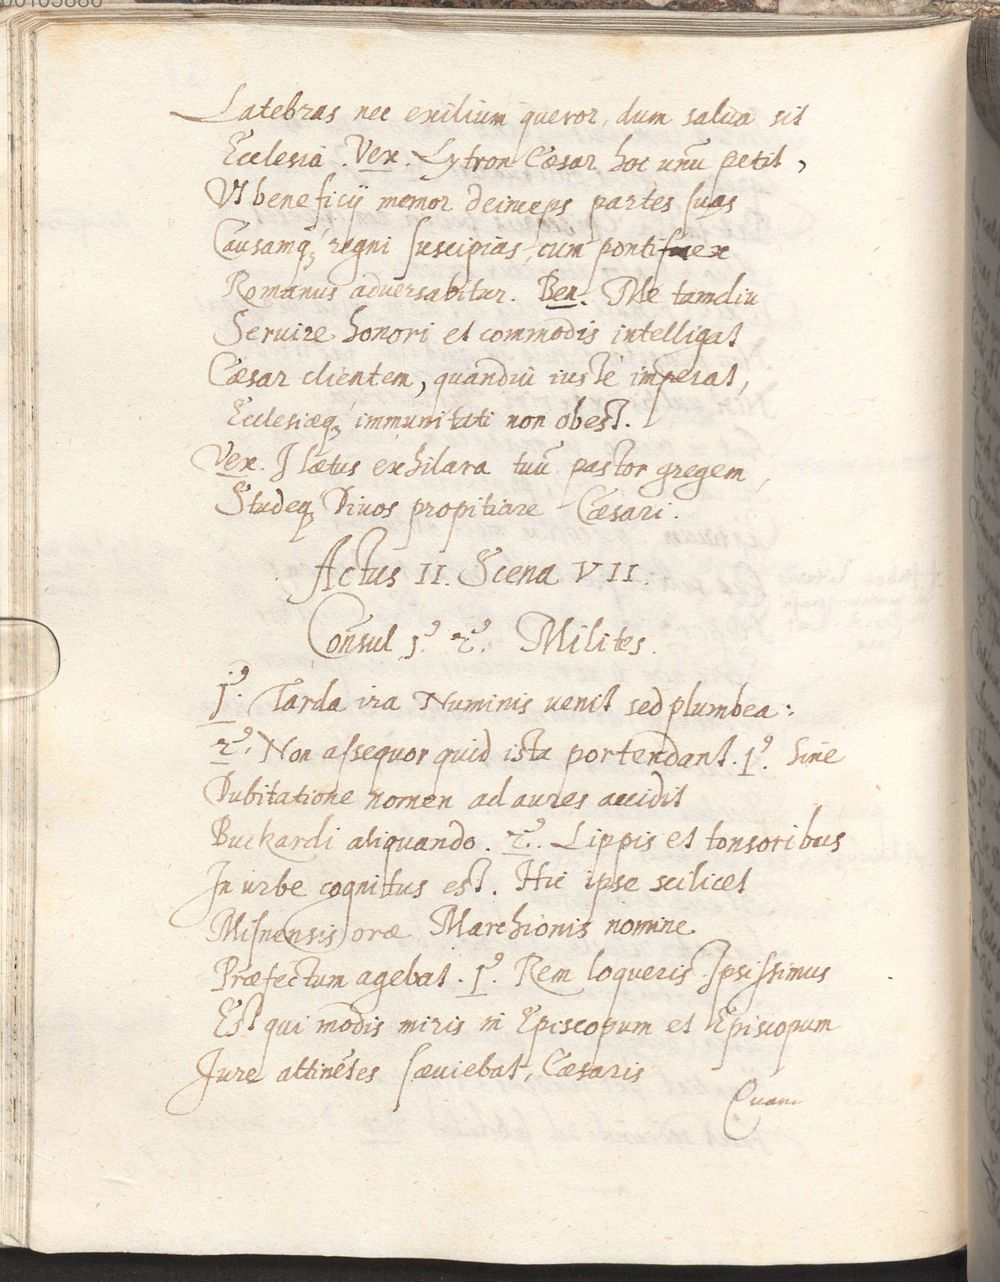 00105886
Latebras nec exilium queror, dum salua sit
Ecclesia. Vex. Lytron Cæsar hoc unū petit,
Vt beneficij memor deinceps partes suas
Causamq́ȝ regni suscipias, cum pontifex
Romanus aduersabitur. Ben. Me tamdiu
Seruire honori et commodis intelligat
Cæsar clientem, quandiu iustè imperat,
Ecclesiæq́ȝ immunitati non obest.
Vex. I lætus exhilara tuū pastor gregem,
Studeq́ȝ Diuos propitiare Cæsari.
Actus II. Scena VII.
Consul 1⁹. 2⁹. Milites.
1⁹. Tarda ira Numinis uenit sed plumbea:
2⁹. Non assequor quid ista portendant. 1⁹. Sine
Dubitatione nomen ad aures accidit
Buckardi aliquando. 2⁹. Lippis et tonsoribus
In urbe cognitus est. Hic ipse scilicet
Misnensis oræ Marchionis nomine
Præfectum agebat. 1⁹. Rem loqueris. Ipsissimus
Est qui modis miris in Episcopum et Episcopum
Jure attinētes sæuiebat, Cæsaris
Quam